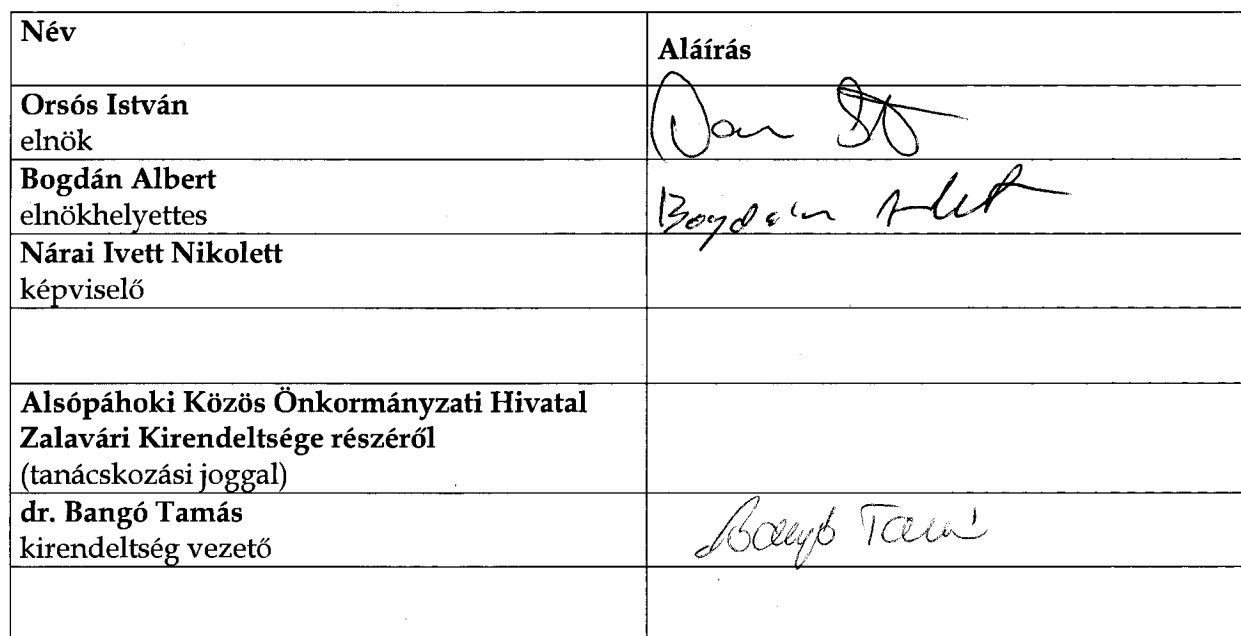 Név
Aláírás
Orsós István
elnök
Bogdán Albert
elnökhelyettes
Bogdán Albert
Nárai Ivett Nikolett
képviselő
Alsópáhoki Közös Önkormányzati Hivatal
Zalavári Kirendeltsége részéről
(tanácskozási joggal)
dr. Bangó Tamás
kirendeltség vezető
Bangó Tamás